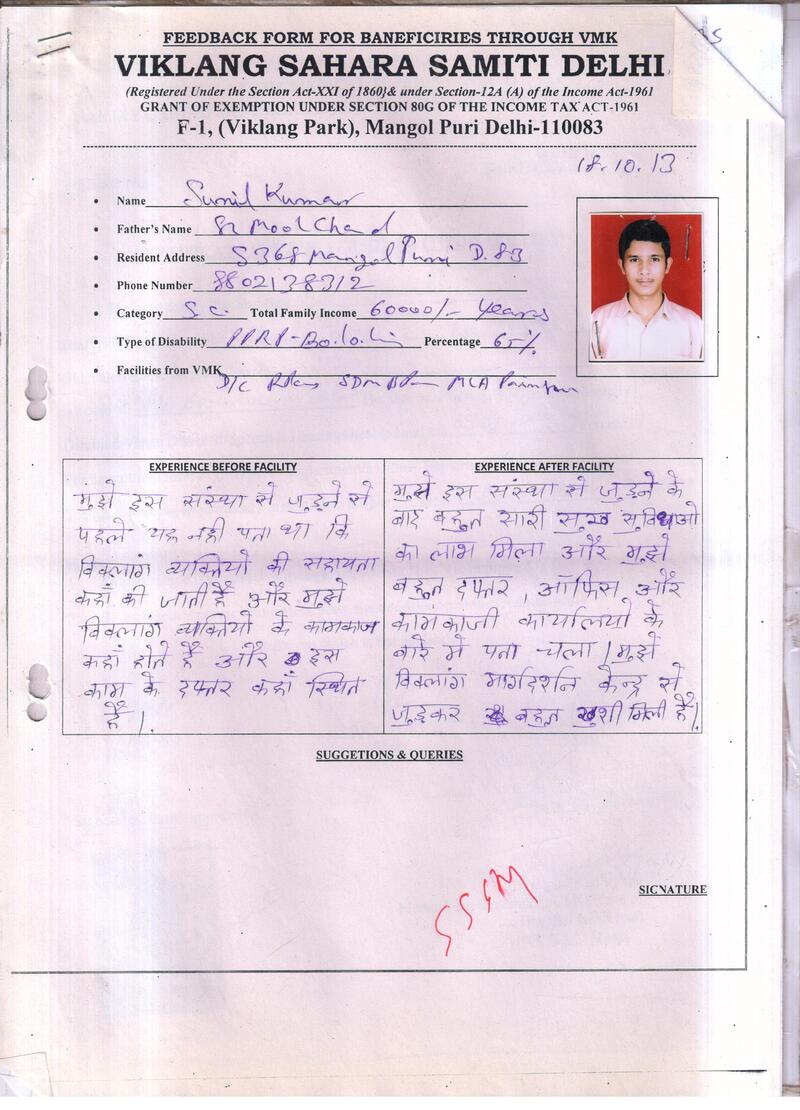 FEEDBACK FORM FOR BANEFICIRIES THROUGH VMK
VIKLANG SAHARA SAMITI DELHI
(Registered Under the Section Act-XXI of 1860}& under Section-12A (A) of the Income Act-1961
GRANT OF EXEMPTION UNDER SECTION 80G OF THE INCOME TAX ACT-1961
F-1, (Viklang Park), Mangol Puri Delhi-110083
18.10.13
Name Sunil Kumar
Father's Name Sh Mool Chand
Resident Address S 368 Mangol Puri D. 83
Phone Number 8802138312
Category S C. Total Family Income 60000/- Years
Type of Disability PPRP- Percentage 65%
Facilities from VMK
D/C SDM MLA
EXPERIENCE BEFORE FACILITY
मुझे इस संस्था से जुड़ने से
पहले यह नही पता था कि
विकलांग व्यक्तियो की सहायता
कहाँ की जाती हैं और मुझे
विकलांग व्यक्तियो के कामकाज
कहाँ होते हैं और इस
काम के दफ्तर कहाँ स्थित
हैं।
EXPERIENCE AFTER FACILITY
मुझे इस संस्था से जुड़ने के
बाद बहुत सारी सुख सुविधाओ
का लाभ मिला और मुझे
बहुत दफ्तर, ऑफिस, और
कामकाजी कार्यालियो के
बारे मे पता चला। मुझे
विकलांग मार्गदर्शन केन्द्र से
जुड़कर बहुत खुशी मिली हैं।
SUGGETIONS & QUERIES
SIGNATURE